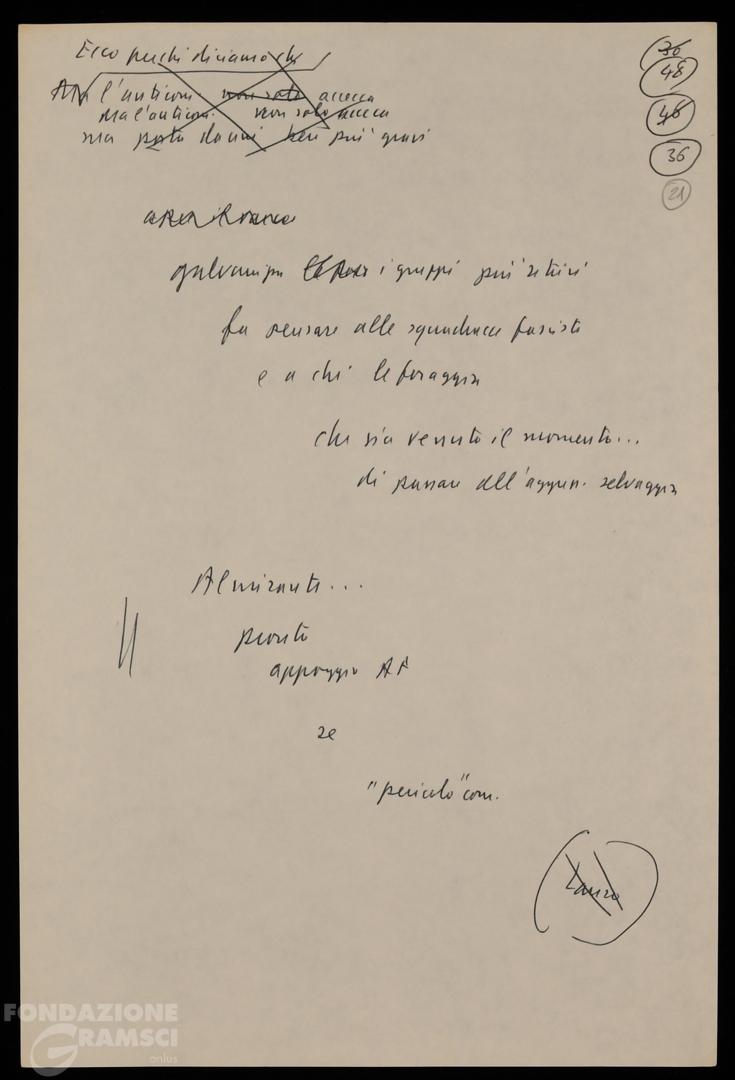 Ecco perché diciamo che
Ma l'anticom. non solo acceca
Ma l'anticom. non solo acceca
ma porta danni ben più gravi
galvanizza i gruppi più retrivi
fa pensare alle squadracce fasciste
e a chi le foraggia
che sia venuto il momento...
di passare all'aggress. selvaggia
Almirante...
pronto
appoggio AF
se
"pericolo" com.
30
48
46
36
21
FONDAZIONE
GRAMSCI
onlus